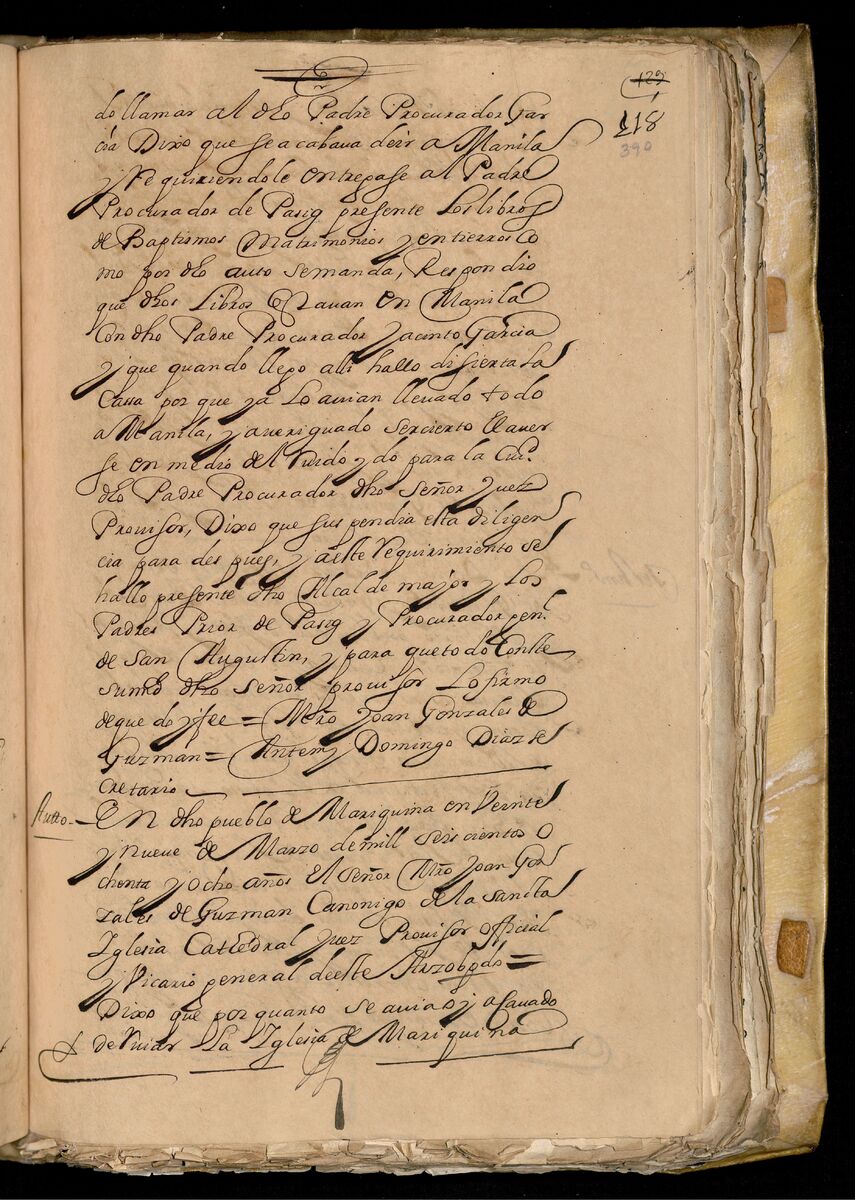 129
118
390
do llamar al dho Padre Procurador Gar
cia Dixo que se acabava de ir a Manila
y Requiriendole entregase al Padre
Procurador de Pasig presente Los libros
de Baptismos Matrimonios y entierros Co
mo por dho auto se manda, Respondio
que dhos Libros estavan en Manila
Con dho Padre Procurador Jacinto Garcia
y que quando llego alli hallo disierta la
Cassa por que ya Lo avian llevado todo
a Manila, y averiguado ser cierto El aver
se en medio del Ruido ydo para la Ciud.
dho Padre Procurador dho Señor Juez
Provisor, Dixo que suspendia esta diligen
cia para despues, y a este Requirimiento se
hallo presente dho Alcalde major y Los
Padres Prior de Pasig y Procurador genl.
de San Augustin, y para que todo Conste
su md dho Señor provisor Lo firmo
de que doy fee = Mro Joan Gonzales de
Guzman = Ante my Domingo Diaz se
cretario
Autto = En dho pueblo de Mariquina en Veinte
y nueve de Marzo de mill seiscientos o
chenta y ocho años El señor Mro Joan Gon
zales de Guzman Canonigo de la sancta
Iglesia Cathedral Juez Provisor official
y Vicario general deeste Arzobpdo =
Dixo que por quanto se avia oy acavado
de Viciar La Iglesia de Mariquina